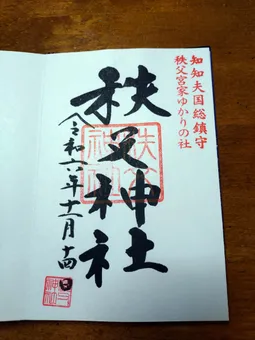 知知夫国総鎮守
秩父宮家ゆかりの社
秩父神社
令和六年十一月十四日